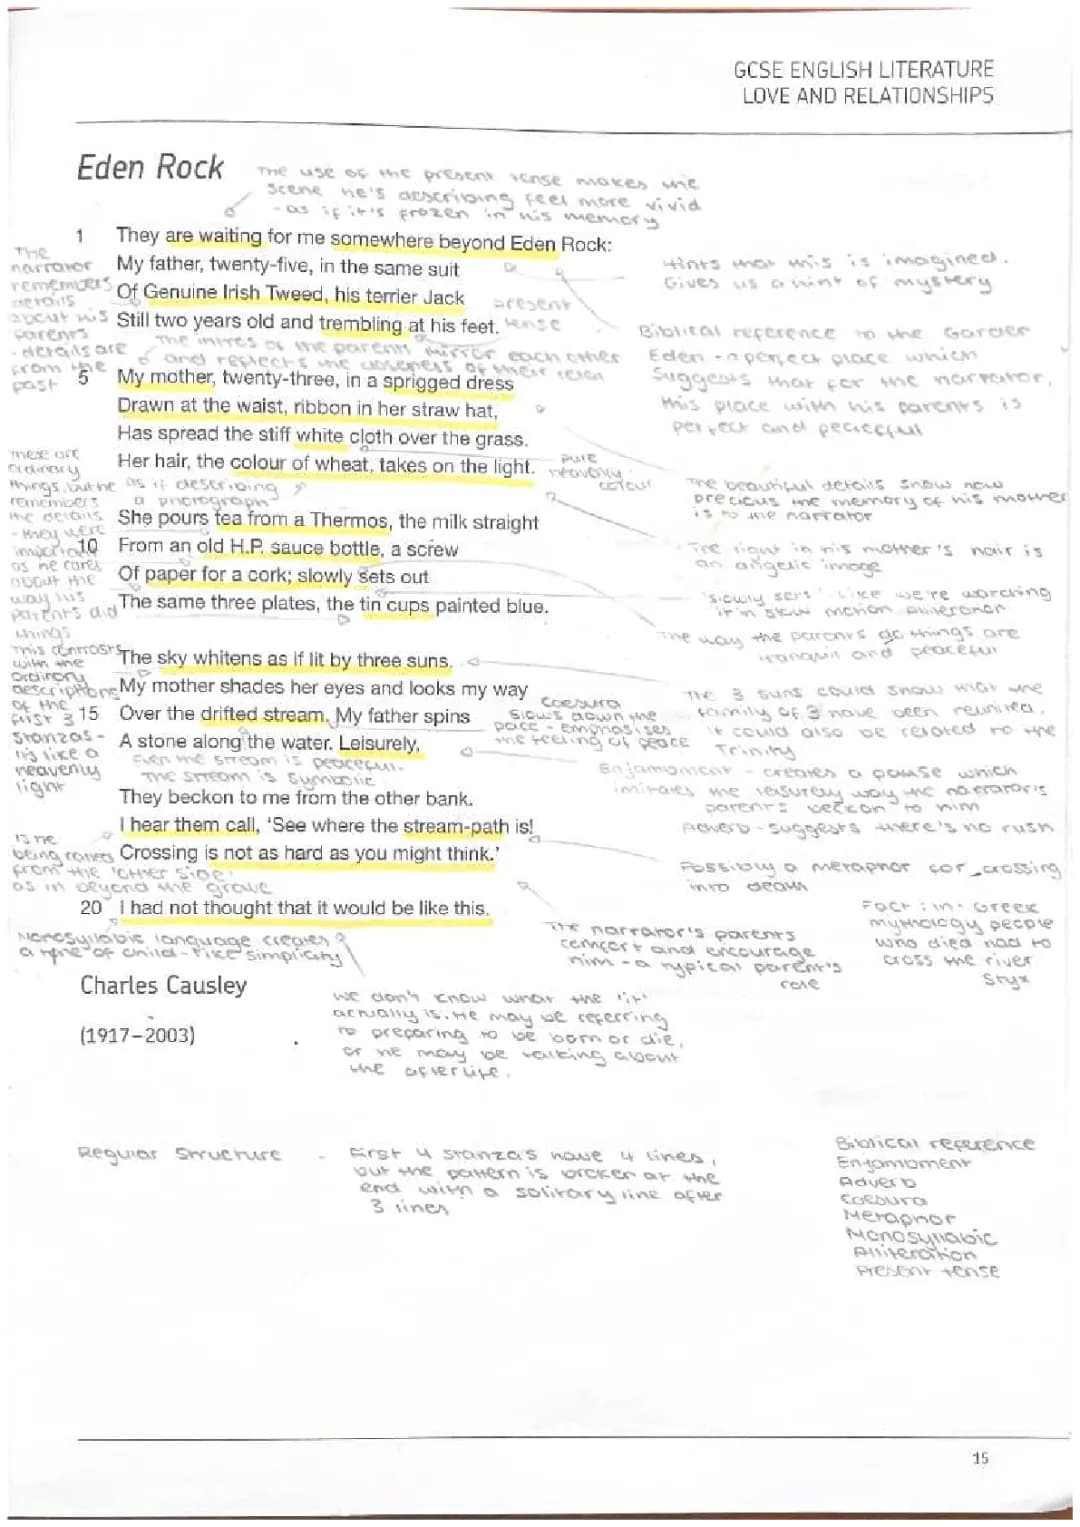 GCSE ENGLISH LITERATURE
LOVE AND RELATIONSHIPS
Eden Rock
The use of the present tense makes the
scene he's describing feel more vivid
- as if it's frozen in his memory
1 They are waiting for me somewhere beyond Eden Rock:
My father, twenty-five, in the same suit
Of Genuine Irish Tweed, his terrier Jack
Still two years old and trembling at his feet.
present
tense
The
narrator
remembers
details
about his
parents
- details are
from the
past
Hints that this is imagined.
Gives us a hint of mystery
Biblical reference to the Garden
Eden - a perfect place which
suggests that for the narrator,
this place with his parents is
perfect and peaceful
The intros of the parents mirror each other
and reflects the closeness of their
5 My mother, twenty-three, in a sprigged dress
Drawn at the waist, ribbon in her straw hat,
Has spread the stiff white cloth over the grass.
Her hair, the colour of wheat, takes on the light.
pure
heavenly
colour
as if describing
a photograph
These are
ordinary
things, but he
remembers
the details
- they were
important
as he cares
about the
way his
parents did
things
The beautiful details show how
precious the memory of his mother
is to the narrator
She pours tea from a Thermos, the milk straight
10 From an old H.P. sauce bottle, a screw
Of paper for a cork; slowly sets out
The same three plates, the tin cups painted blue.
The light in his mother's hair is
an angelic image
'slowly sets' like we're watching
it in slow motion Alliteration
The way the parents do things are
tranquil and peaceful
This contrasts
with the
ordinary
descriptions
of the
first 3
stanzas -
it's like a
heavenly
light
The sky whitens as if lit by three suns.
My mother shades her eyes and looks my way
15 Over the drifted stream. My father spins
A stone along the water. Leisurely,
Caesura
slows down the
pace - emphasises
the feeling of peace
Even the stream is peaceful.
The stream is symbolic
The 3 suns could show that the
family of 3 have been reunited.
It could also be related to the
Trinity
Enjambment - creates a pause which
imitates the leisurely way the narrator's
parents beckon to him
Adverb - suggests there's no rush
They beckon to me from the other bank.
I hear them call, 'See where the stream-path is!
Crossing is not as hard as you might think.'
Is he
being called
from the 'other side'
as in beyond the grave
Possibly a metaphor for crossing
into death
20 I had not thought that it would be like this.
Monosyllabic language creates
a type of child-like simplicity
The narrator's parents
comfort and encourage
him - a typical parent's
role
Fact: in Greek
mythology people
who died had to
cross the river
Styx
Charles Causley
(1917–2003)
We don't know what the 'it'
actually is. He may be referring
to preparing to be born or die,
or he may be talking about
the afterlife.
Regular structure - First 4 stanzas have 4 lines,
but the pattern is broken at the
end with a solitary line after
3 lines
Biblical reference
Enjambment
Adverb
Caesura
Metaphor
Monosyllabic
Alliteration
Present tense
15